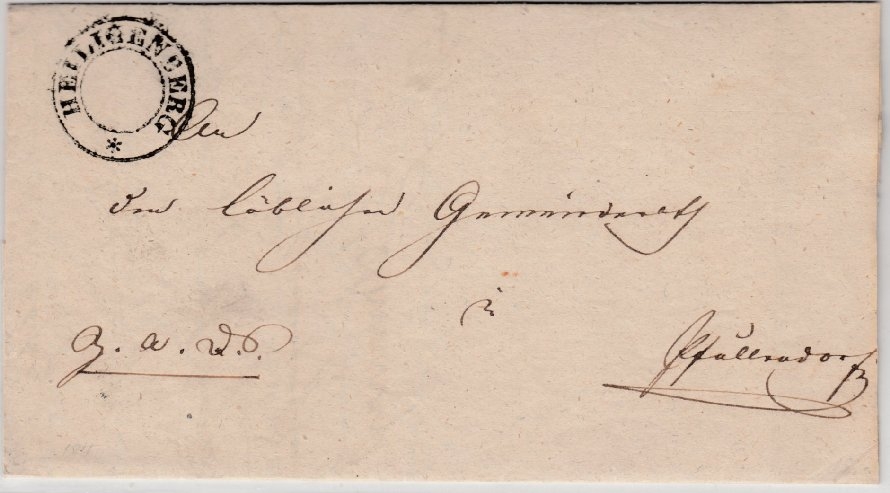 HEILIGENBERG
*
An
den löblichen Gemeinderath
in
Pfullendorf